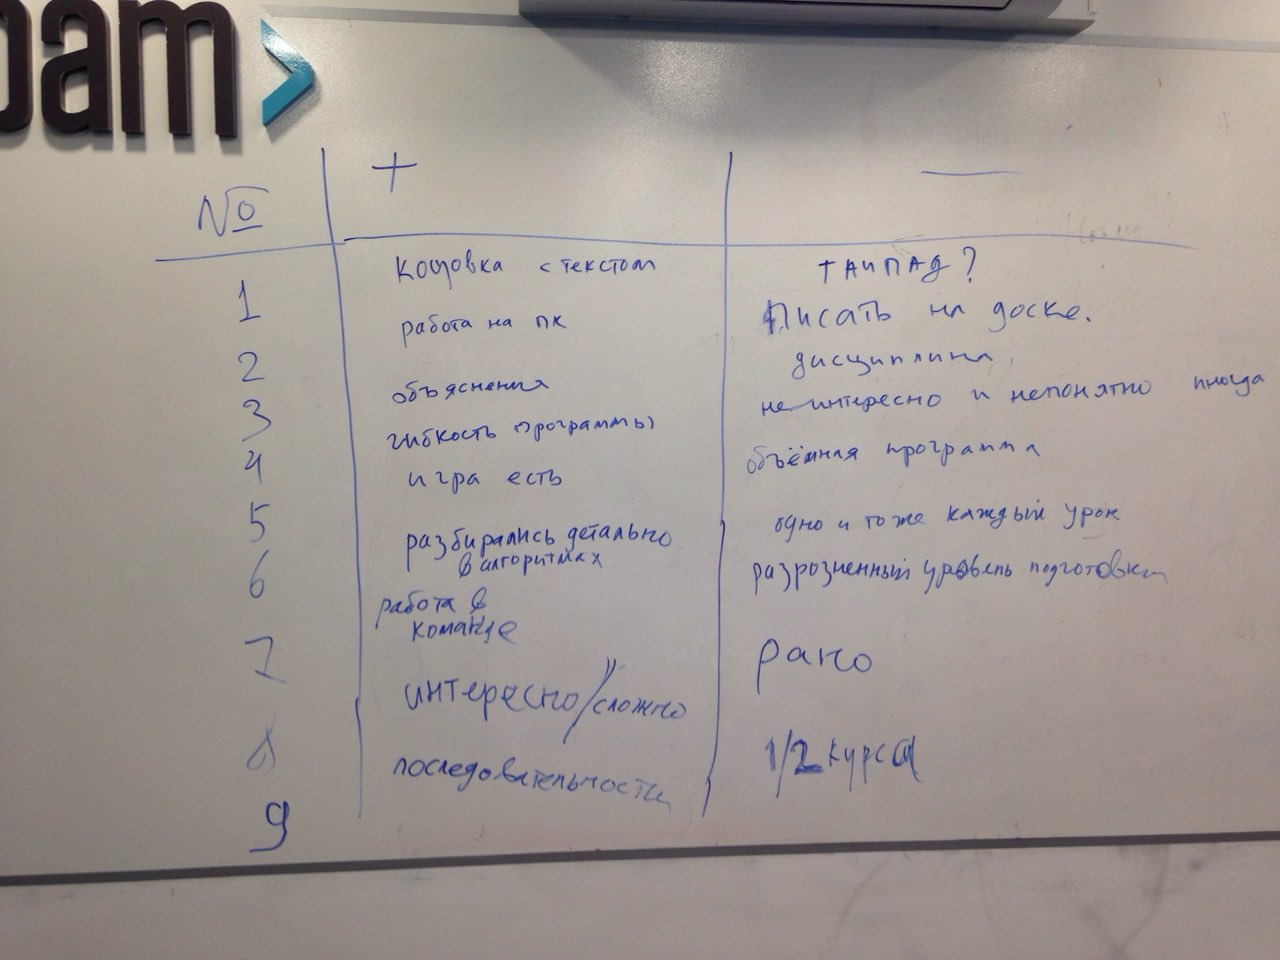 oam
№ + —
1 Кодовка с текстом тАиПАД?
работа на пк Писать на доске.
2 объяснения дисциплина
3 гибкость программы неинтересно и непонятно иногда
4 игра есть объёмная программа
5 разбирались детально одно и тоже каждый урок
в алгоритмах
6 работа в разрозненный уровень подготовки
команде
7 интересно//сложно рано
8 последовательности 1/2 курса
9